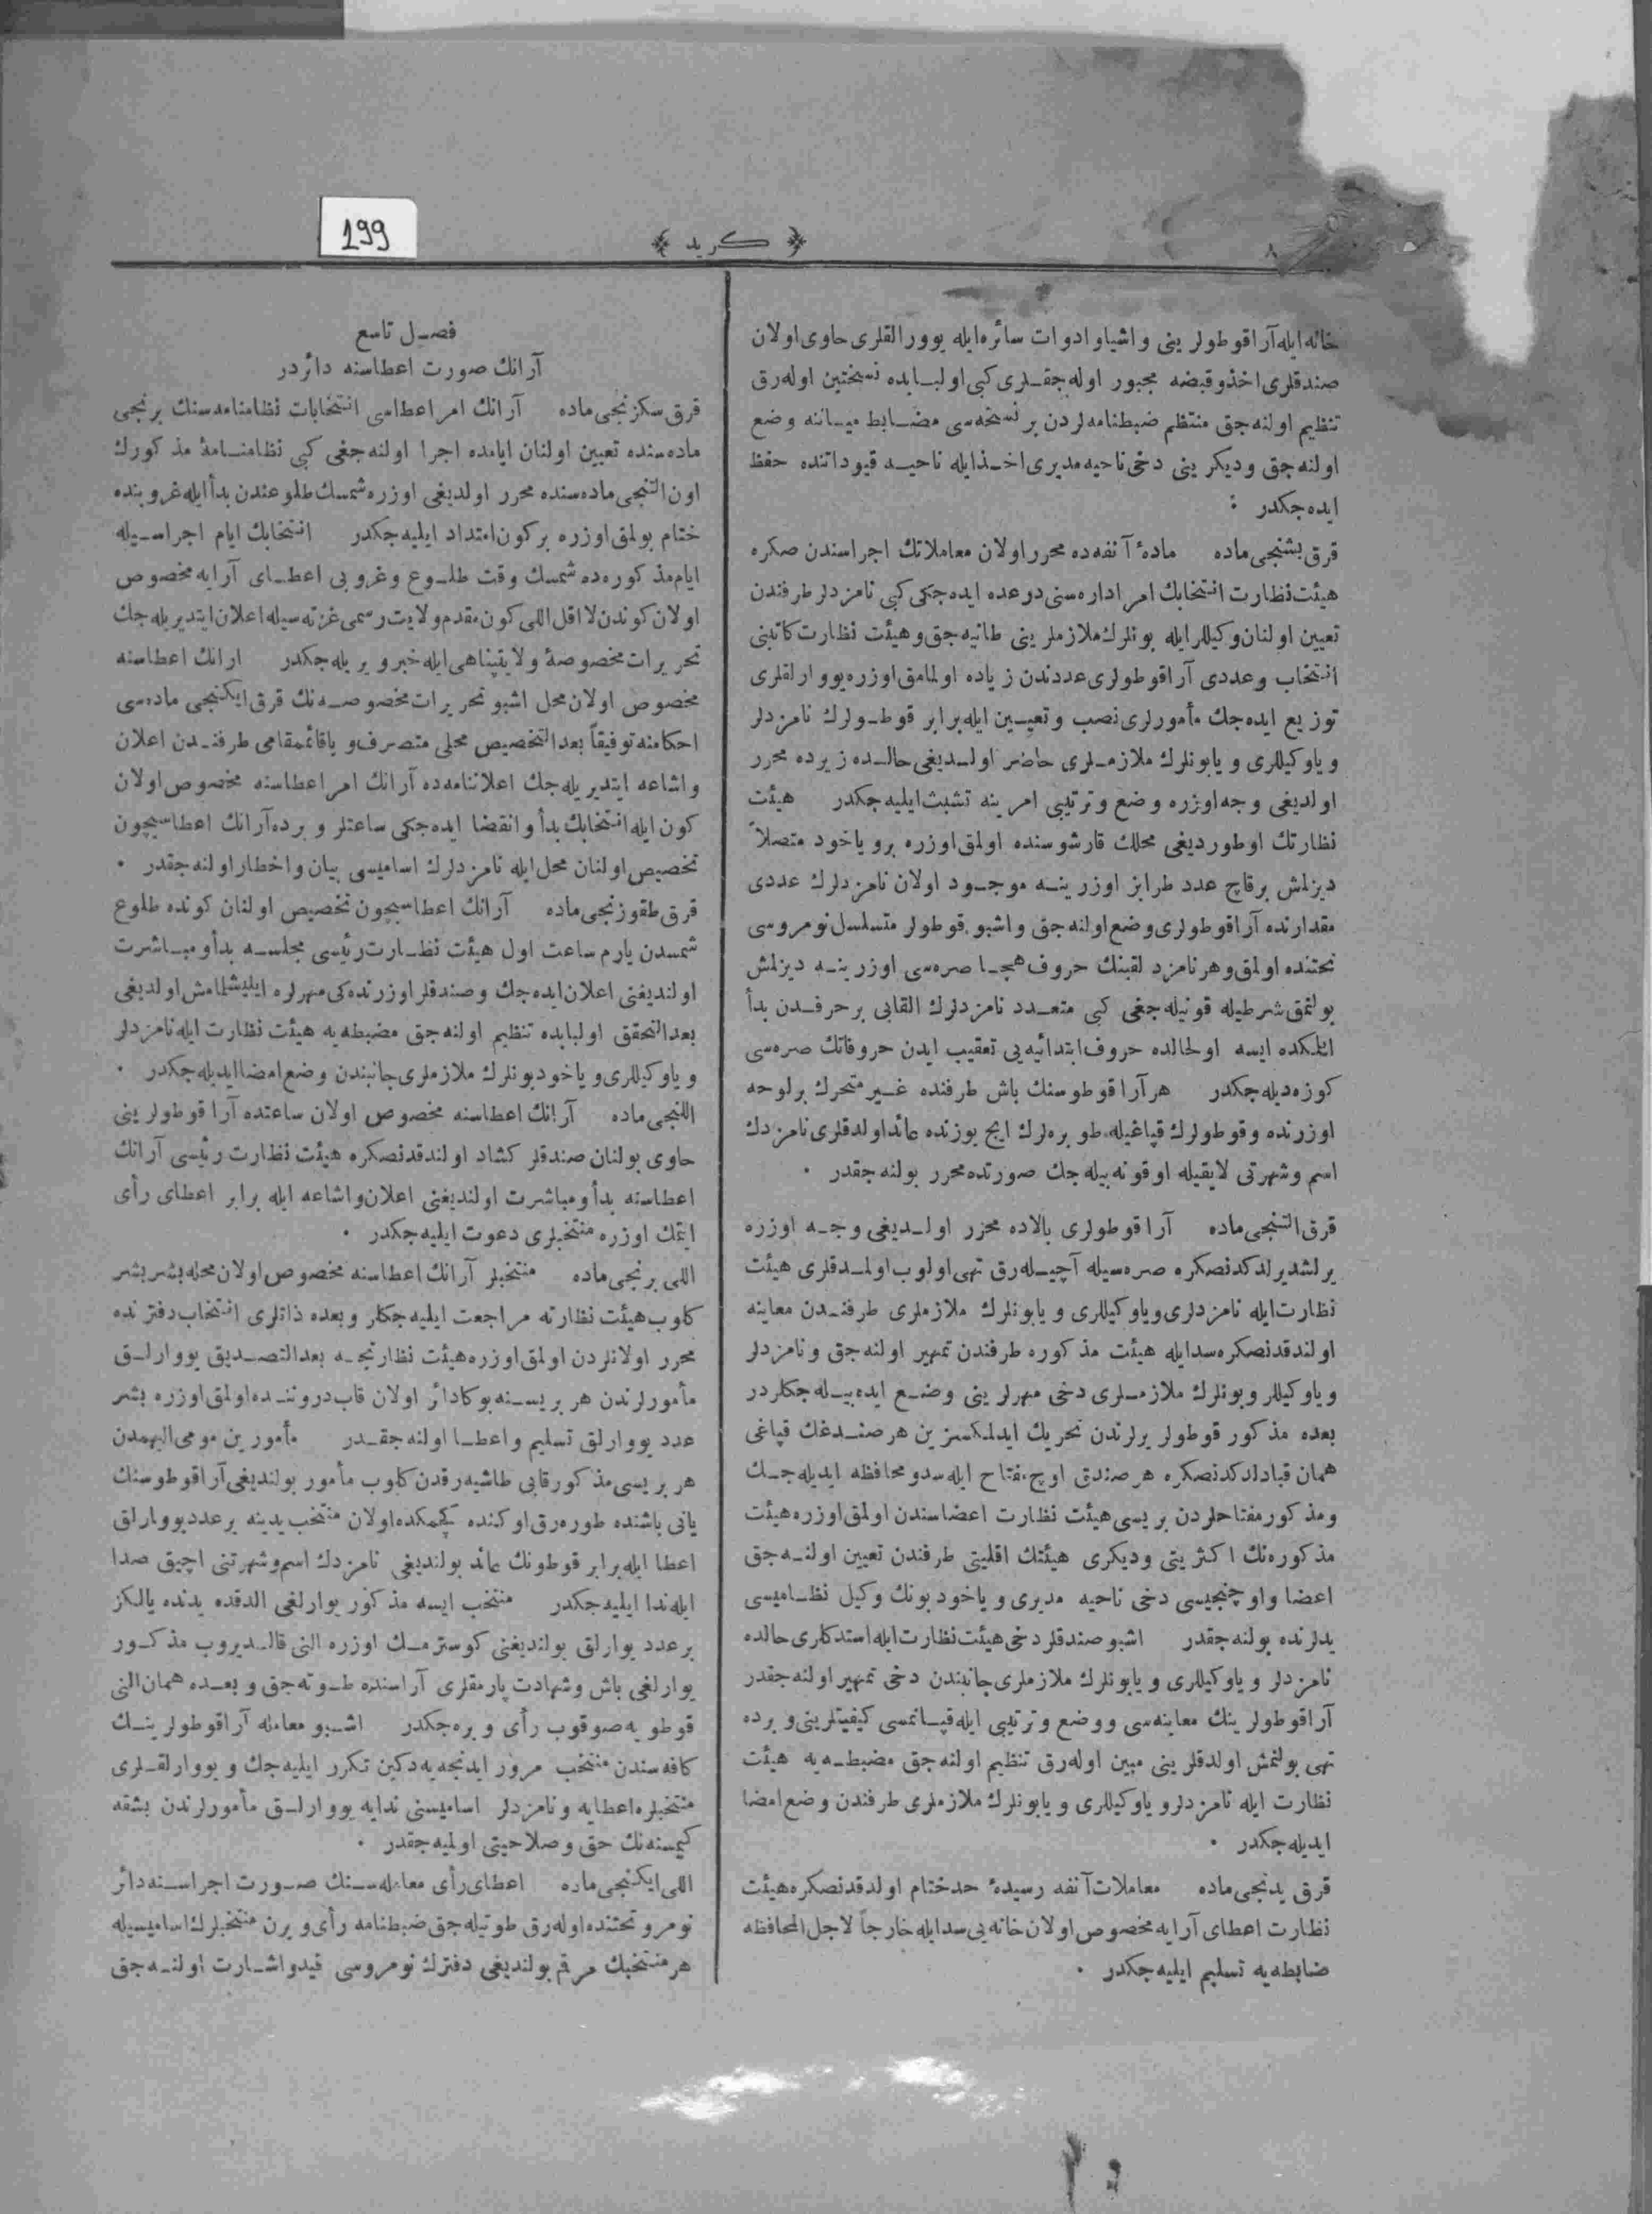 199
﴿ كريد ﴾
٨
خانه ايله آرا قوطولرينى و اشيا و ادوات سائره ايله يووارلقلرى حاوى اولان
صندقلرى اخذ و قبضه مجبور اوله جقلرى كبى اولبابده نسختين اوله رق
تنظيم اولنه جق منتظم ضبطنامه لردن بر نسخه سى مضابط ميانه وضع
اولنه جق و ديكرينى دخى ناحيه مديرى اخذ ايله ناحيه قيوداتنده حفظ
ايده جكدر :
قرق بشنجى ماده مادۀ آنفه ده محرر اولان معاملاتك اجراسندن صكره
هيئت نظارت انتخابك امر اداره سنى درعده ايده جكى كبى نامزدلر طرفندن
تعيين اولنان وكيللر ايله بونلرك ملازملرينى طانيه جق و هيئت نظارت كاتبنى
انتخاب و عددى آرا قوطولرى عددندن زياده اولمامق اوزره يووارلقلرى
توزيع ايده جك مأمورلرى نصب و تعيين ايله برابر قوطولرك نامزدلر
وياوكيللرى و يابونلرك ملازملرى حاضر اولديغى حالده زيرده محرر
اولديغى وجه اوزره وضع و ترتيبى امرينه تشبث ايليه جكدر هيئت
نظارتك اوطورديغى محلك قارشوسنده اولمق اوزره برو ياخود متصلاً
ديزلمش برقاچ عدد طرابز اوزرينه موجود اولان نامزدلرك عددى
مقدارنده آرا قوطولرى وضع اولنه جق و اشبو قوطولر متسلسل نومروسى
تحتنده اولمق و هر نامزد لقبنك حروف هجا صره سى اوزرينه ديزلمش
بولنمق شرطيله قونيله جغى كبى متعدد نامزدلرك القابى بر حرفدن بدأ
ايتمكده ايسه اولحالده حروف ابتدائيه يى تعقيب ايدن حروفاتك صره سى
كوزه ديله جكدر هر آرا قوطوسنك باش طرفنده غير متحرك بر لوحه
اوزرنده و قوطولرك قپاغيله طوبره لرك ايچ يوزنده عائد اولدقلرى نامزدك
اسم و شهرتى لايقيله اوقونه بيله جك صورتده محرر بولنه جقدر ·
قرق التنجى ماده آرا قوطولرى بالاده محرر اولديغى وجه اوزره
يرلشديرلدكدنصكره صره سيله آچيله رق تهى اولوب اولمدقلرى هيئت
نظارت ايله نامزدلرى وياوكيللرى و يابونلرك ملازملرى طرفندن معاينه
اولندقدنصكره سد ايله هيئت مذكوره طرفندن تمهير اولنه جق و نامزدلر
وياوكيللر و بونلرك ملازملرى دخى مهرلرينى وضع ايده بيله جكلردر
بعده مذكور قوطولر يرلرندن تحريك ايدلمكسزين هر صندغك قپاغى
همان قپادلدكدنصكره هر صندق اوچ مفتاح ايله سد و محافظه ايديله جك
ومذكور مفتاحلردن بريسى هيئت نظارت اعضاسندن اولمق اوزره هيئت
مذكوره نك اكثريتى و ديكرى هيئتك اقليتى طرفندن تعيين اولنه جق
اعضا و اوچنجيسى دخى ناحيه مديرى و ياخود بونك وكيل نظاميسى
يدلرنده بولنه جقدر اشبو صندقلر دخى هيئت نظارت ايله استدكلرى حالده
نامزدلر و ياوكيللرى و يابونلرك ملازملرى جانبندن دخى تمهير اولنه جقدر
آرا قوطولرينك معاينه سى و وضع و ترتيبى ايله قپاتمسى كيفيتلرينى و برده
تهى بولنمش اولدقلرينى مبين اوله رق تنظيم اولنه جق مضبطه يه هيئت
نظارت ايله نامزدلر و ياوكيللرى و يابونلرك ملازملرى طرفندن وضع امضا
ايديله جكدر ·
قرق يدنجى ماده معاملات آنفه رسيدۀ حد ختام اولدقدنصكره هيئت
نظارت اعطاى آرايه مخصوص اولان خانه يى سد ايله خارجاً لاجل المحافظه
ضابطه يه تسليم ايليه جكدر ·
فصل تاسع
آرانك صورت اعطاسنه دائردر
قرق سكزنجى ماده آرانك امر اعطاسى انتخابات نظامنامه سنك برنجى
ماده سنده تعيين اولنان ايامده اجرا اولنه جغى كبى نظامنامۀ مذكورك
اون التنجى ماده سنده محرر اولديغى اوزره شمسك طلوعندن بدأ ايله غروبنده
ختام بولمق اوزره بر كون امتداد ايليه جكدر انتخابك ايام اجراسيله
ايام مذكوره ده شمسك وقت طلوع و غروبى اعطاى آرايه مخصوص
اولان كوندن لااقل اللى كون مقدم ولايت رسمى غزته سيله اعلان ايتديريله جك
تحريرات مخصوصۀ ولايتپناهى ايله خبر ويريله جكدر ارانك اعطاسنه
مخصوص اولان محل اشبو تحريرات مخصوصه نك قرق ايكنجى ماده سى
احكامنه توفيقاً بعد التخصيص محلى متصرف و ياقائمقامى طرفندن اعلان
و اشاعه ايتديريله جك اعلاننامه ده آرانك امر اعطاسنه مخصوص اولان
كون ايله انتخابك بدأ و انقضا ايده جكى ساعتلر و برده آرانك اعطاسيچون
تخصيص اولنان محل ايله نامزدلرك اساميسى بيان و اخطار اولنه جقدر ·
قرق طقوزنجى ماده آرانك اعطاسيچون تخصيص اولنان كونده طلوع
شمسدن يارم ساعت اول هيئت نظارت رئيسى مجلسه بدأ و مباشرت
اولنديغنى اعلان ايده جك و صندقلر اوزرنده كى مهرلره ايليشلمامش اولديغى
بعد التحقق اولبابده تنظيم اولنه جق مضبطه يه هيئت نظارت ايله نامزدلر
و ياوكيللرى و ياخود بونلرك ملازملرى جانبندن وضع امضا ايديله جكدر ·
اللنجى ماده آرانك اعطاسنه مخصوص اولان ساعتده آرا قوطولرينى
حاوى بولنان صندقلر كشاد اولندقدنصكره هيئت نظارت رئيسى آرانك
اعطاسنه بدأ و مباشرت اولنديغنى اعلان و اشاعه ايله برابر اعطاى رأى
ايتمك اوزره منتخبلرى دعوت ايليه جكدر ·
اللى برنجى ماده منتخبلر آرانك اعطاسنه مخصوص اولان محله بشر بشر
كلوب هيئت نظارته مراجعت ايليه جكلر و بعده ذاتلرى انتخاب دفترنده
محرر اولانلردن اولمق اوزره هيئت نظارتجه بعد التصديق يووارلق
مأمورلرندن هر بريسنه بوكا دائر اولان قاب دروننده اولمق اوزره بشر
عدد يووارلق تسليم و اعطا اولنه جقدر مأمورين مومى اليهمدن
هر بريسى مذكور قابى طاشيه رق دن كلوب مأمور بولنديغى آرا قوطوسنك
يانى باشنده طوره رق اوكنده كچمكده اولان منتخب يدينه بر عدد يووارلق
اعطا ايله برابر قوطونك عائد بولنديغى نامزدك اسم و شهرتنى اچيق صدا
ايله ندا ايليه جكدر منتخب ايسه مذكور يوارلغى الدقده يدنده يالكز
بر عدد يوارلق بولنديغنى كوسترمك اوزره النى قالديروب مذكور
يوارلغى باش و شهادت پارمقلرى آراسنده طوته جق و بعده همان النى
قوطويه صوقوب رأى ويره جكدر اشبو معامله آرا قوطولرينك
كافه سندن منتخب مرور ايدنجه يه دكين تكرر ايليه جك و يووارلقلرى
منتخبلره اعطايه و نامزدلر اساميسنى ندايه يووارلق مأمورلرندن بشقه
كيمسه نك حق و صلاحيتى اولميه جقدر ·
اللى ايكنجى ماده اعطاى رأى معامله سنك صورت اجراسنه دائر
نومرو تحتنده اوله رق طوتيله جق ضبطنامه رأى ويرن منتخبلرك اساميسيله
هر منتخبك مرقم بولنديغى دفترك نومروسى قيد و اشارت اولنه جق